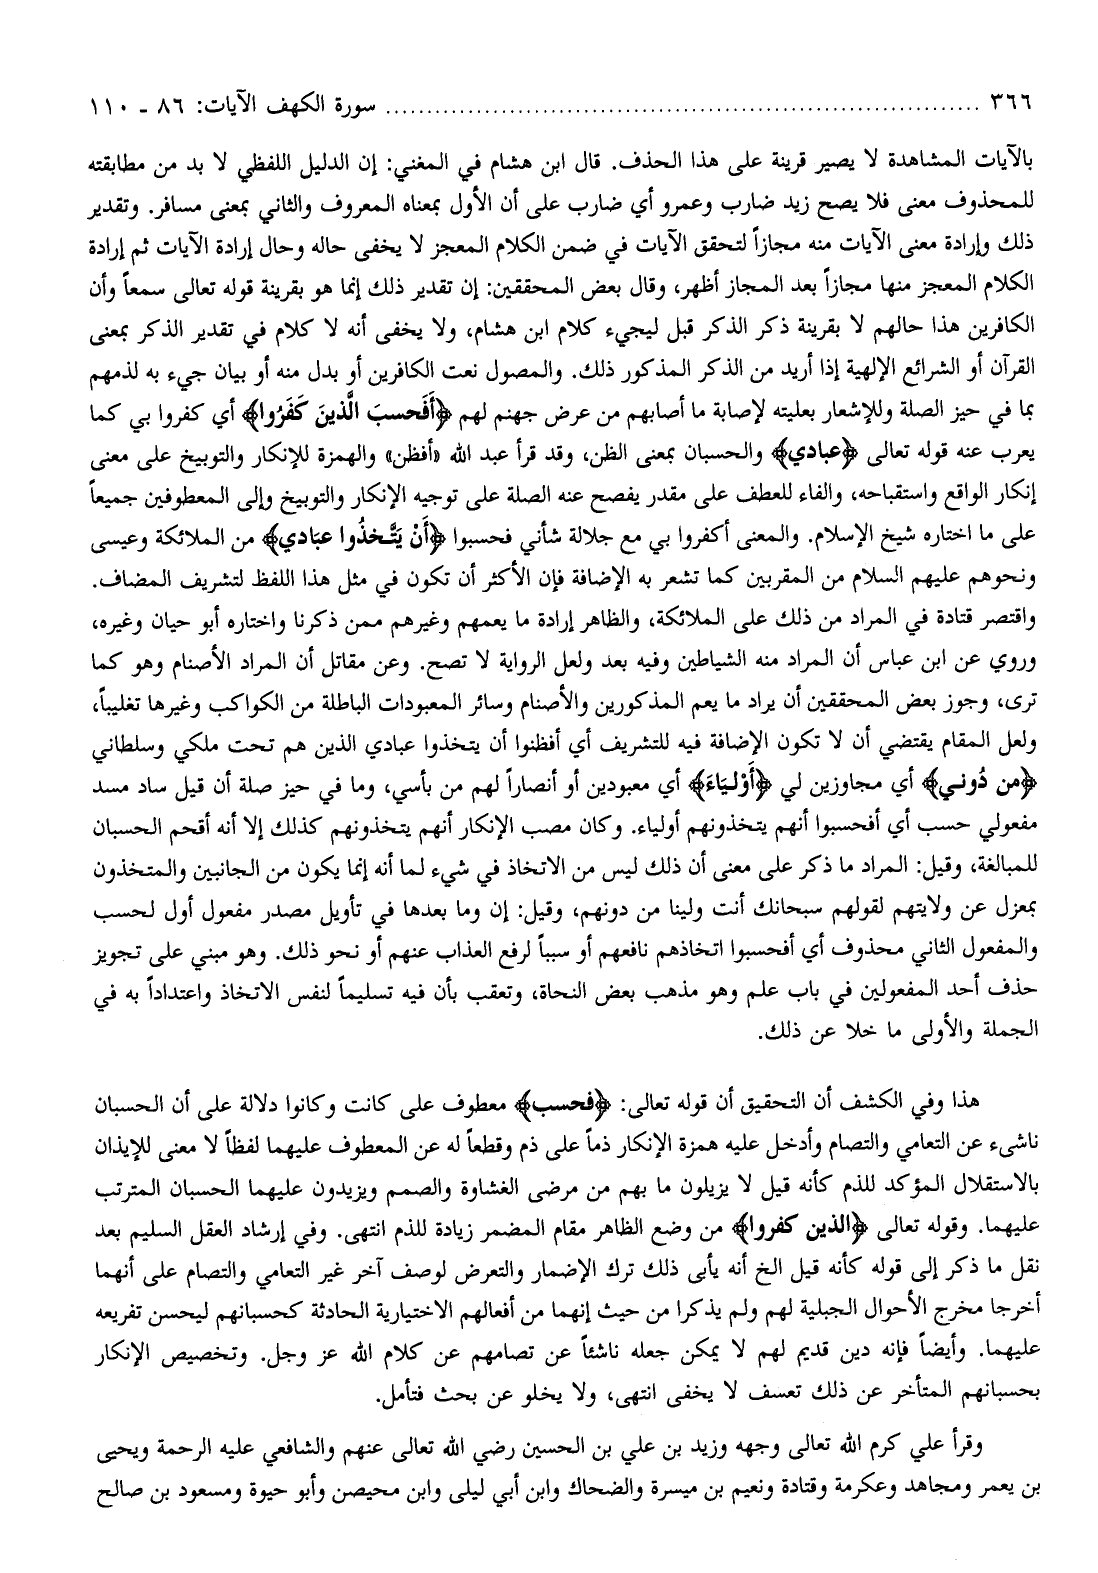 ٣٦٦ ........................................................................ سورة الكهف الآيات: ٨٦ ـ ١١٠
بالآيات المشاهدة لا يصير قرينة على هذا الحذف. قال ابن هشام في المغني: إن الدليل اللفظي لا بد من مطابقته
للمحذوف معنى فلا يصح زيد ضارب وعمرو أي ضارب على أن الأول بمعناه المعروف والثاني بمعنى مسافر. وتقدير
ذلك وإرادة معنى الآيات منه مجازاً لتحقق الآيات في ضمن الكلام المعجز لا يخفى حاله وحال إرادة الآيات ثم إرادة
الكلام المعجز منها مجازاً بعد المجاز أظهر، وقال بعض المحققين: إن تقدير ذلك إنما هو بقرينة قوله تعالى سمعاً وأن
الكافرين هذا حالهم لا بقرينة ذكر الذكر قبل ليجيء كلام ابن هشام، ولا يخفى أنه لا كلام في تقدير الذكر بمعنى
القرآن أو الشرائع الإلهية إذا أريد من الذكر المذكور ذلك. والمصول نعت الكافرين أو بدل منه أو بيان جيء به لذمهم
بما في حيز الصلة وللإشعار بعليته لإصابة ما أصابهم من عرض جهنم لهم ﴿أَفَحسبَ الَّذينَ كَفَرُوا﴾ أي كفروا بي كما
يعرب عنه قوله تعالى ﴿عبادي﴾ والحسبان بمعنى الظن، وقد قرأ عبد الله «أفظن» والهمزة للإنكار والتوبيخ على معنى
إنكار الواقع واستقباحه، والفاء للعطف على مقدر يفصح عنه الصلة على توجيه الإنكار والتوبيخ وإلى المعطوفين جميعاً
على ما اختاره شيخ الإسلام. والمعنى أكفروا بي مع جلالة شأني فحسبوا ﴿أَنْ يَتَّخذُوا عبَادي﴾ من الملائكة وعيسى
ونحوهم عليهم السلام من المقربين كما تشعر به الإضافة فإن الأكثر أن تكون في مثل هذا اللفظ لتشريف المضاف.
واقتصر قتادة في المراد من ذلك على الملائكة، والظاهر إرادة ما يعمهم وغيرهم ممن ذكرنا واختاره أبو حيان وغيره،
وروي عن ابن عباس أن المراد منه الشياطين وفيه بعد ولعل الرواية لا تصح. وعن مقاتل أن المراد الأصنام وهو كما
ترى، وجوز بعض المحققين أن يراد ما يعم المذكورين والأصنام وسائر المعبودات الباطلة من الكواكب وغيرها تغليباً،
ولعل المقام يقتضي أن لا تكون الإضافة فيه للتشريف أي أفظنوا أن يتخذوا عبادي الذين هم تحت ملكي وسلطاني
﴿من دُوني﴾ أي مجاوزين لي ﴿أَوْليَاءَ﴾ أي معبودين أو أنصاراً لهم من بأسي، وما في حيز صلة أن قيل ساد مسد
مفعولي حسب أي أفحسبوا أنهم يتخذونهم أولياء. وكان مصب الإنكار أنهم يتخذونهم كذلك إلا أنه أقحم الحسبان
للمبالغة، وقيل: المراد ما ذكر على معنى أن ذلك ليس من الاتخاذ في شيء لما أنه إنما يكون من الجانبين والمتخذون
بمعزل عن ولايتهم لقولهم سبحانك أنت ولينا من دونهم، وقيل: إن وما بعدها في تأويل مصدر مفعول أول لحسب
والمفعول الثاني محذوف أي أفحسبوا اتخاذهم نافعهم أو سبباً لرفع العذاب عنهم أو نحو ذلك. وهو مبني على تجويز
حذف أحد المفعولين في باب علم وهو مذهب بعض النحاة، وتعقب بأن فيه تسليماً لنفس الاتخاذ واعتداداً به في
الجملة والأولى ما خلا عن ذلك.
هذا وفي الكشف أن التحقيق أن قوله تعالى: ﴿فحسب﴾ معطوف على كانت وكانوا دلالة على أن الحسبان
ناشىء عن التعامي والتصام وأدخل عليه همزة الإنكار ذماً على ذم وقطعاً له عن المعطوف عليهما لفظاً لا معنى للإيذان
بالاستقلال المؤكد للذم كأنه قيل لا يزيلون ما بهم من مرضى الغشاوة والصمم ويزيدون عليهما الحسبان المترتب
عليهما. وقوله تعالى ﴿الذين كفروا﴾ من وضع الظاهر مقام المضمر زيادة للذم انتهى. وفي إرشاد العقل السليم بعد
نقل ما ذكر إلى قوله كأنه قيل الخ أنه يأبى ذلك ترك الإضمار والتعرض لوصف آخر غير التعامي والتصام على أنهما
أخرجا مخرج الأحوال الجبلية لهم ولم يذكرا من حيث إنهما من أفعالهم الاختيارية الحادثة كحسبانهم ليحسن تفريعه
عليهما. وأيضاً فإنه دين قديم لهم لا يمكن جعله ناشئاً عن تصامهم عن كلام الله عز وجل. وتخصيص الإنكار
بحسبانهم المتأخر عن ذلك تعسف لا يخفى انتهى، ولا يخلو عن بحث فتأمل.
وقرأ علي كرم الله تعالى وجهه وزيد بن علي بن الحسين رضي الله تعالى عنهم والشافعي عليه الرحمة ويحيى
بن يعمر ومجاهد وعكرمة وقتادة ونعيم بن ميسرة والضحاك وابن أبي ليلى وابن محيصن وأبو حيوة ومسعود بن صالح